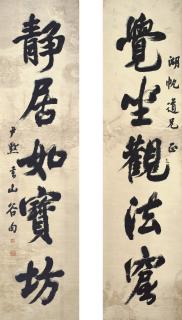 覺坐觀法窟
湖帆道兄正
靜居如寶坊
尹默書山谷句